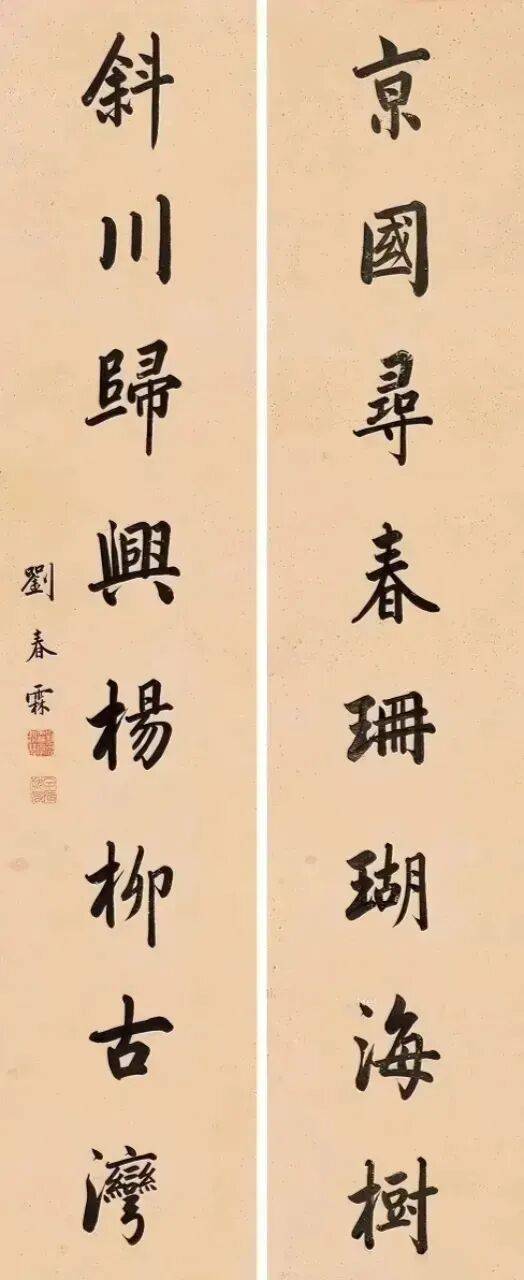 京國尋春珊瑚海樹
斜川歸興楊柳古灣
劉春霖